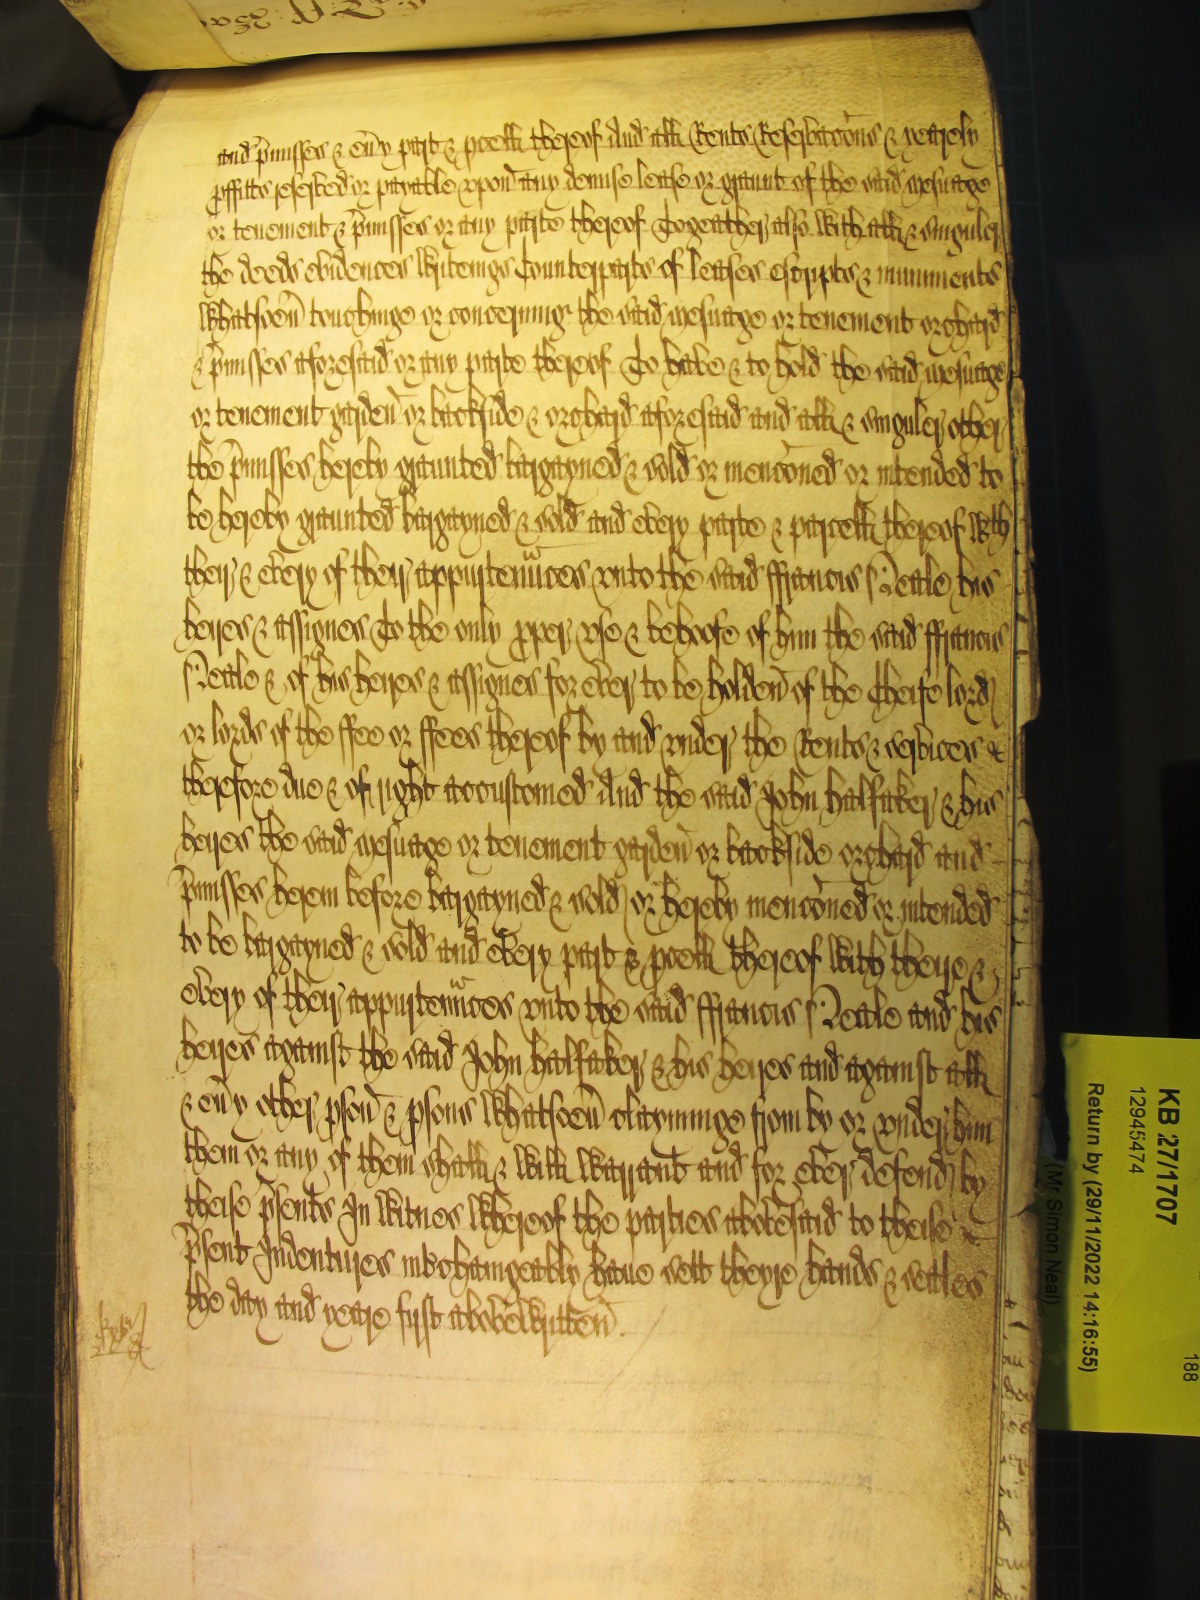 and p̄misses & eūy part & pcell thereof And all Rents Reservacōns & yearely
proffitts reserved or payable upon any demise lease or graunt of the said mesuage
or tenement & p̄misses or any parte thereof Togeather also with all & singuler
the deeds evidences writeings Counterparts of leases escripts & muniments
whatsoeū touchinge or concerning the said mesuage or tenement orchard
& p̄misses aforesaid or any parte thereof To have & to hold the said mesuage
or tenement garden or backside & orchard aforesaid and all & singuler other
the p̄misses hereby graunted bargayned & sold or mencōned or intended to
be hereby graunted bargayned & sold and every parte & parcell thereof with
their & every of their appurtenn̄ces unto the said ffrancis Neale his
heires & assignes To the only pper use & behoofe of him the said ffrancis
Neale & of his heires & assignes for ever to be holden of the Cheife lord
or lords of the ffee or ffees thereof by and under the Rents & services
therefore due & of right accustomed And the said John halfaker & his
heires the said mesuage or tenement garden or backside orchard and
p̄misses herein before bargayned & sold or hereby mencōned or intended
to be bargayned & sold and every part & pcell thereof with theire &
every of their appurtenn̄ces unto the said ffrancis Neale and his
heires against the said John halfaker & his heires and against all
& eūy other pson & psons whatsoeū clayminge from by or under him
them or any of them shall & will warrant and for ever defend by
theise p̄sents In witnes whereof the parties abovesaid to theise
p̄sent Indentures interchaingeably have sett theyre hands & seales
the day and yeare first abovewritten
KB 27/1707
12945474
Return by (29/11/2022 14:16:55)
(Mr Simon Neal)
188